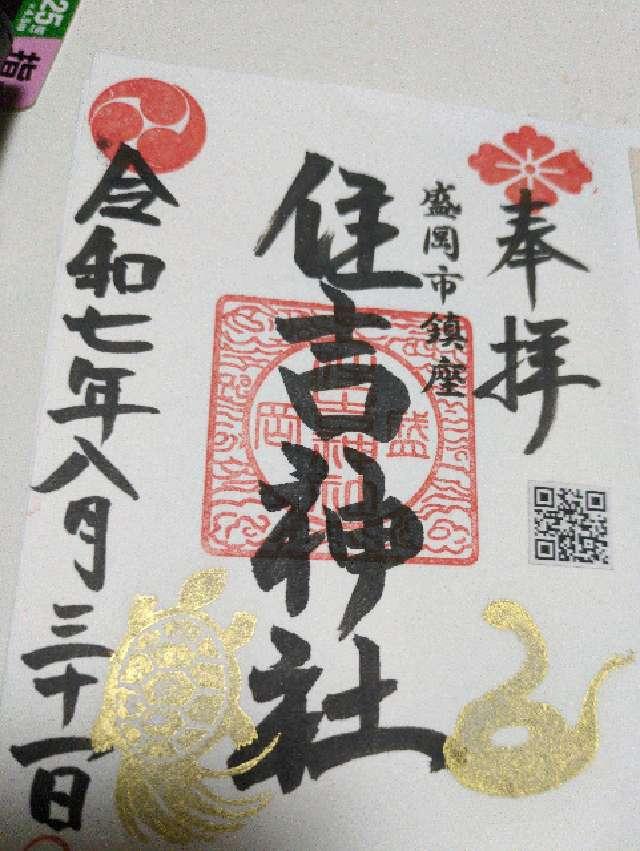 奉拝
盛岡市鎮座
住吉神社
盛岡
令和七年八月三十一日
25